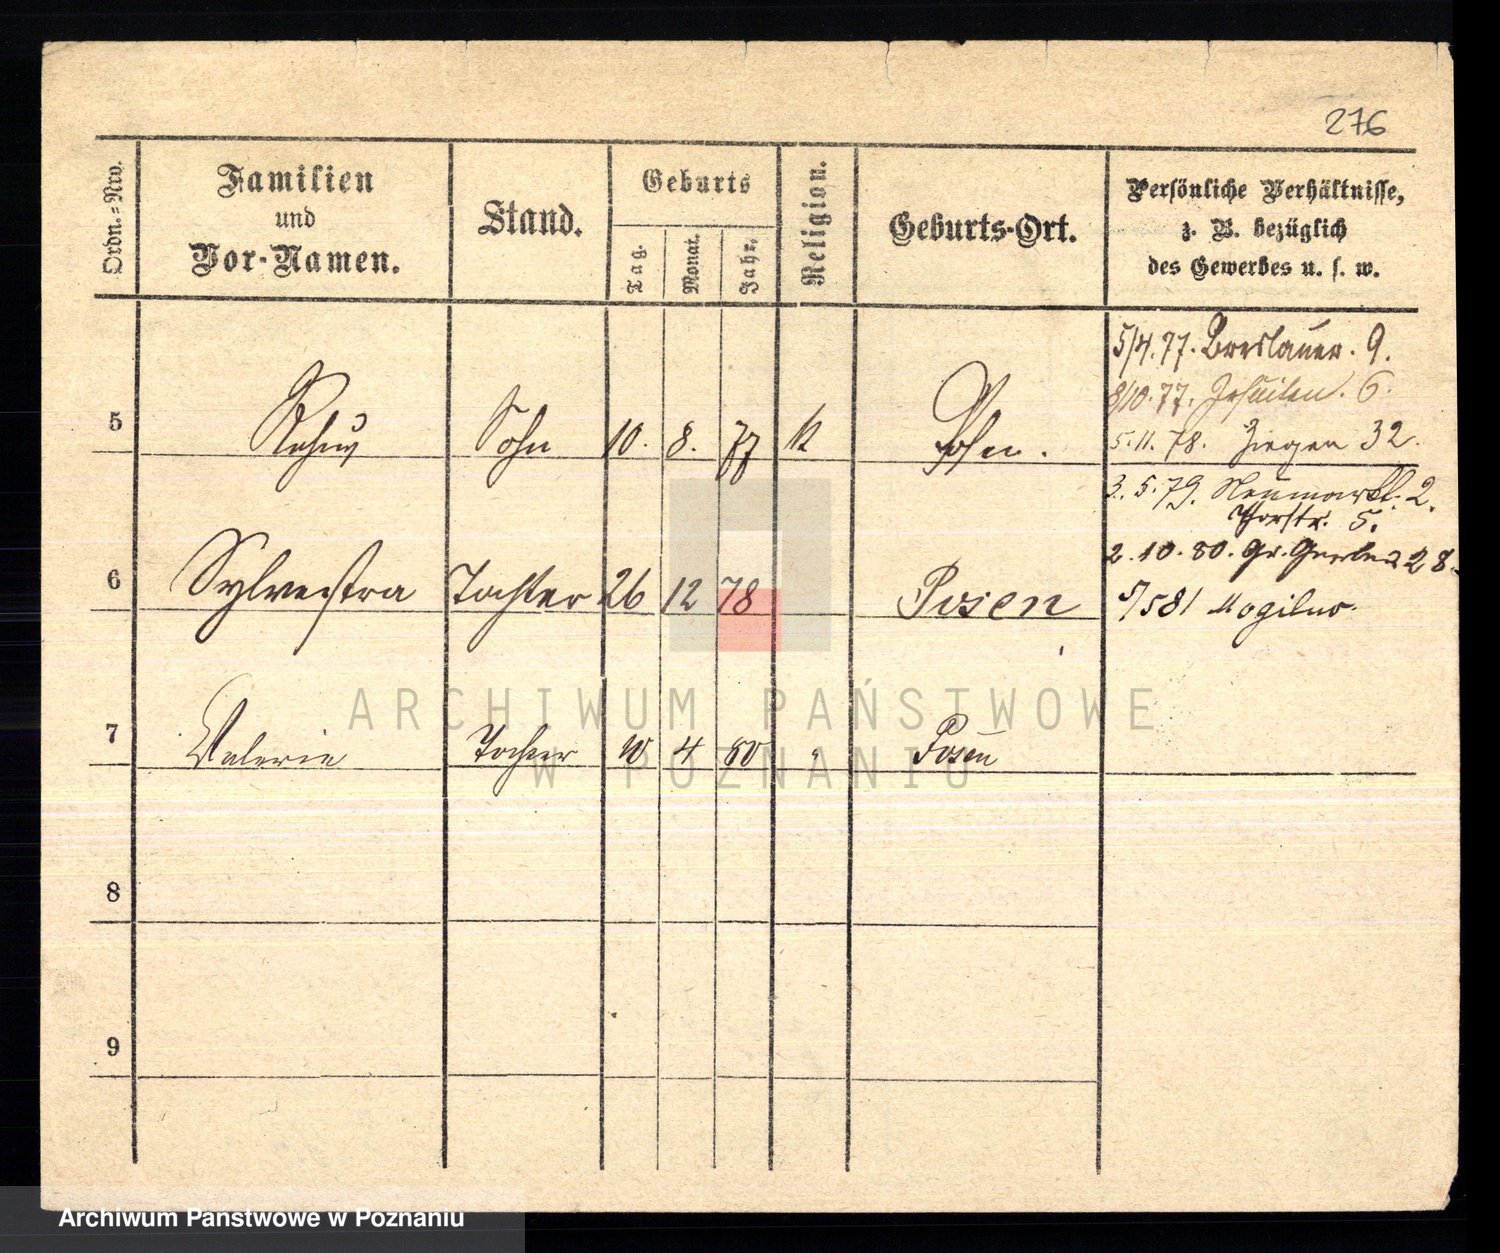 276
Ordn.-Nro.
Familien
und
Vor-Namen.
Stand.
Geburts
Tag.
Monat.
Jahr.
Religion.
Geburts-Ort.
Persönliche Verhältnisse,
z. B. bezüglich
des Gewerbes u. s. w.
5/4.77. Breslauer. 9.
8/10.77. Jesuiten. 6.
5.11.78. Ziegen 32.
5 Sohn 10. 8. 77 k Posen.
3.5.79. Neumarkt. 2.
Thorstr. 5.
2.10.80. Gr. Gerber 28.
6 Sylvestra Tochter 26 12 78 Posen
5/581 Mogilno.
7 Valerie Tochter 10 4 80 " Posen
8
9
ARCHIWUM PAŃSTWOWE
W POZNANIU
Archiwum Państwowe w Poznaniu